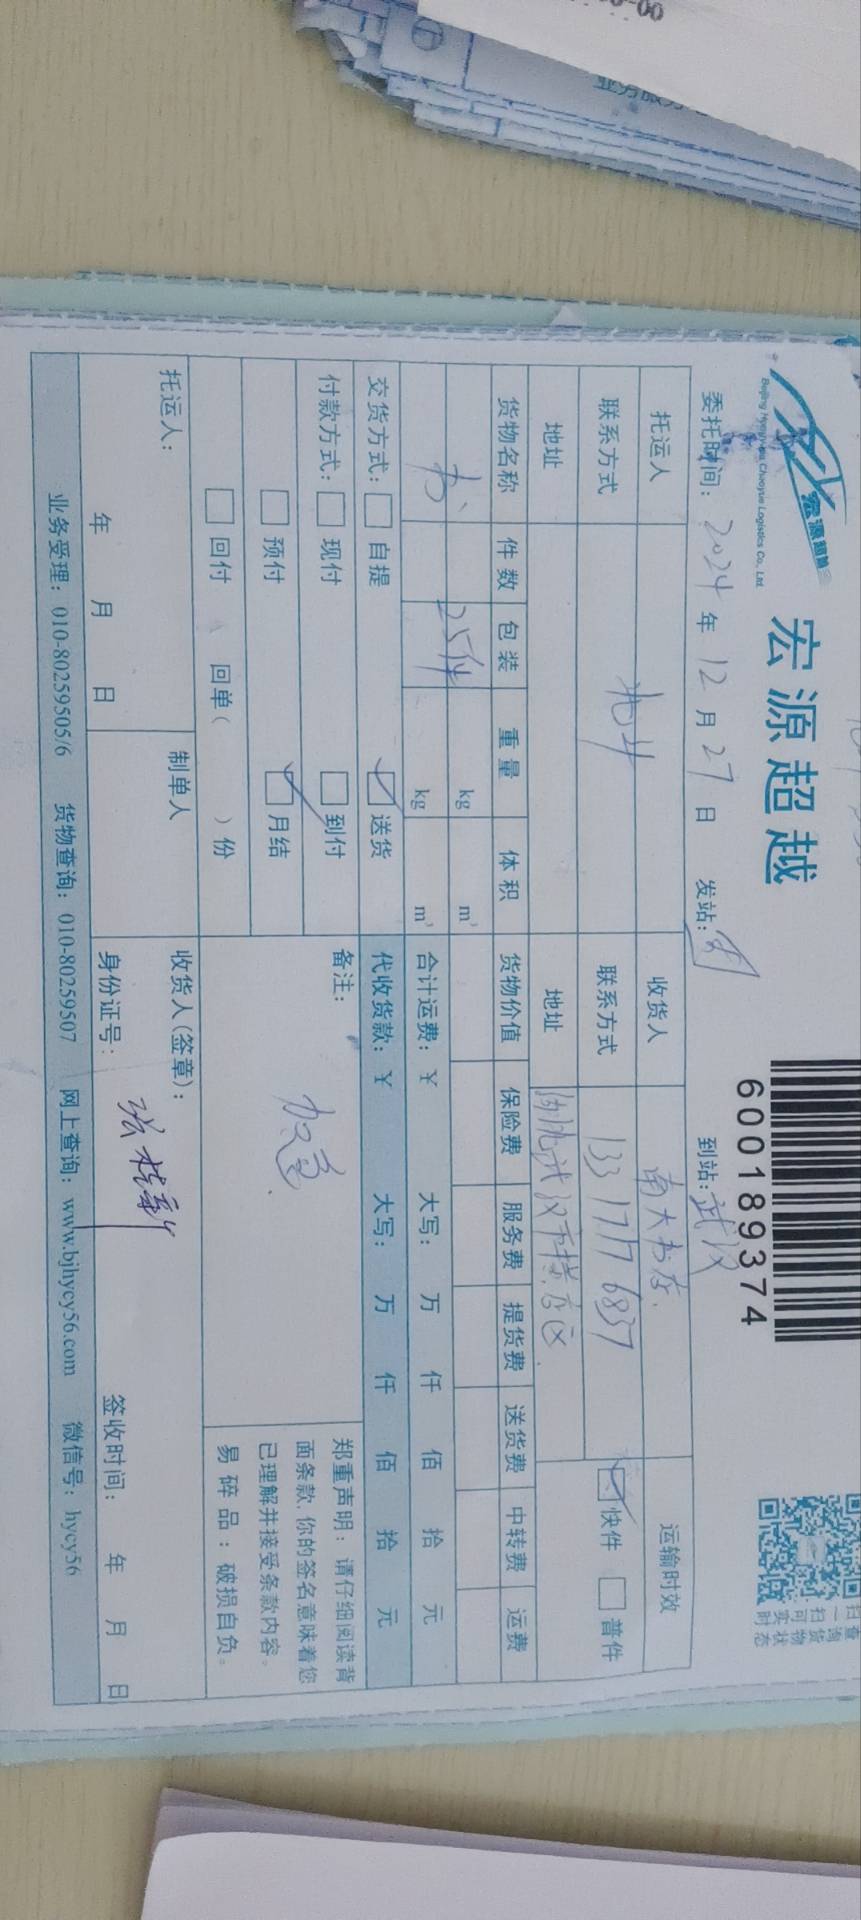 宏源超越
Beijing Hongyuan Chaoyue Logistics Co., Ltd
宏源超越
600189374
扫一扫
查询货物
可实时状态
委托时间: 2024 年 12 月 27 日 发站: 到站: 武汉
托运人 收货人 南大书店 运输时效
联系方式 联系方式 13317176837 快件 普件
地址 地址 武汉市
货物名称 件数 包装 重量 体积 货物价值 保险费 服务费 提货费 送货费 中转费 运费
书 25件 kg m³
kg m³ 合计运费: ¥ 大写: 万 仟 佰 拾 元
交货方式: 自提 送货 代收货款: ¥ 大写: 万 仟 佰 拾 元
付款方式: 现付 到付 备注: 加急
预付 月结
回付 回单( )份
郑重声明: 请仔细阅读背
面条款,你的签名意味着您
已理解并接受条款内容。
易碎品: 破损自负。
托运人: 制单人 收货人(签章):
年 月 日 身份证号: 签收时间: 年 月 日
业务受理: 010-80259505/6 货物查询: 010-80259507 网上查询: www.bjhycy56.com 微信号: hycy56